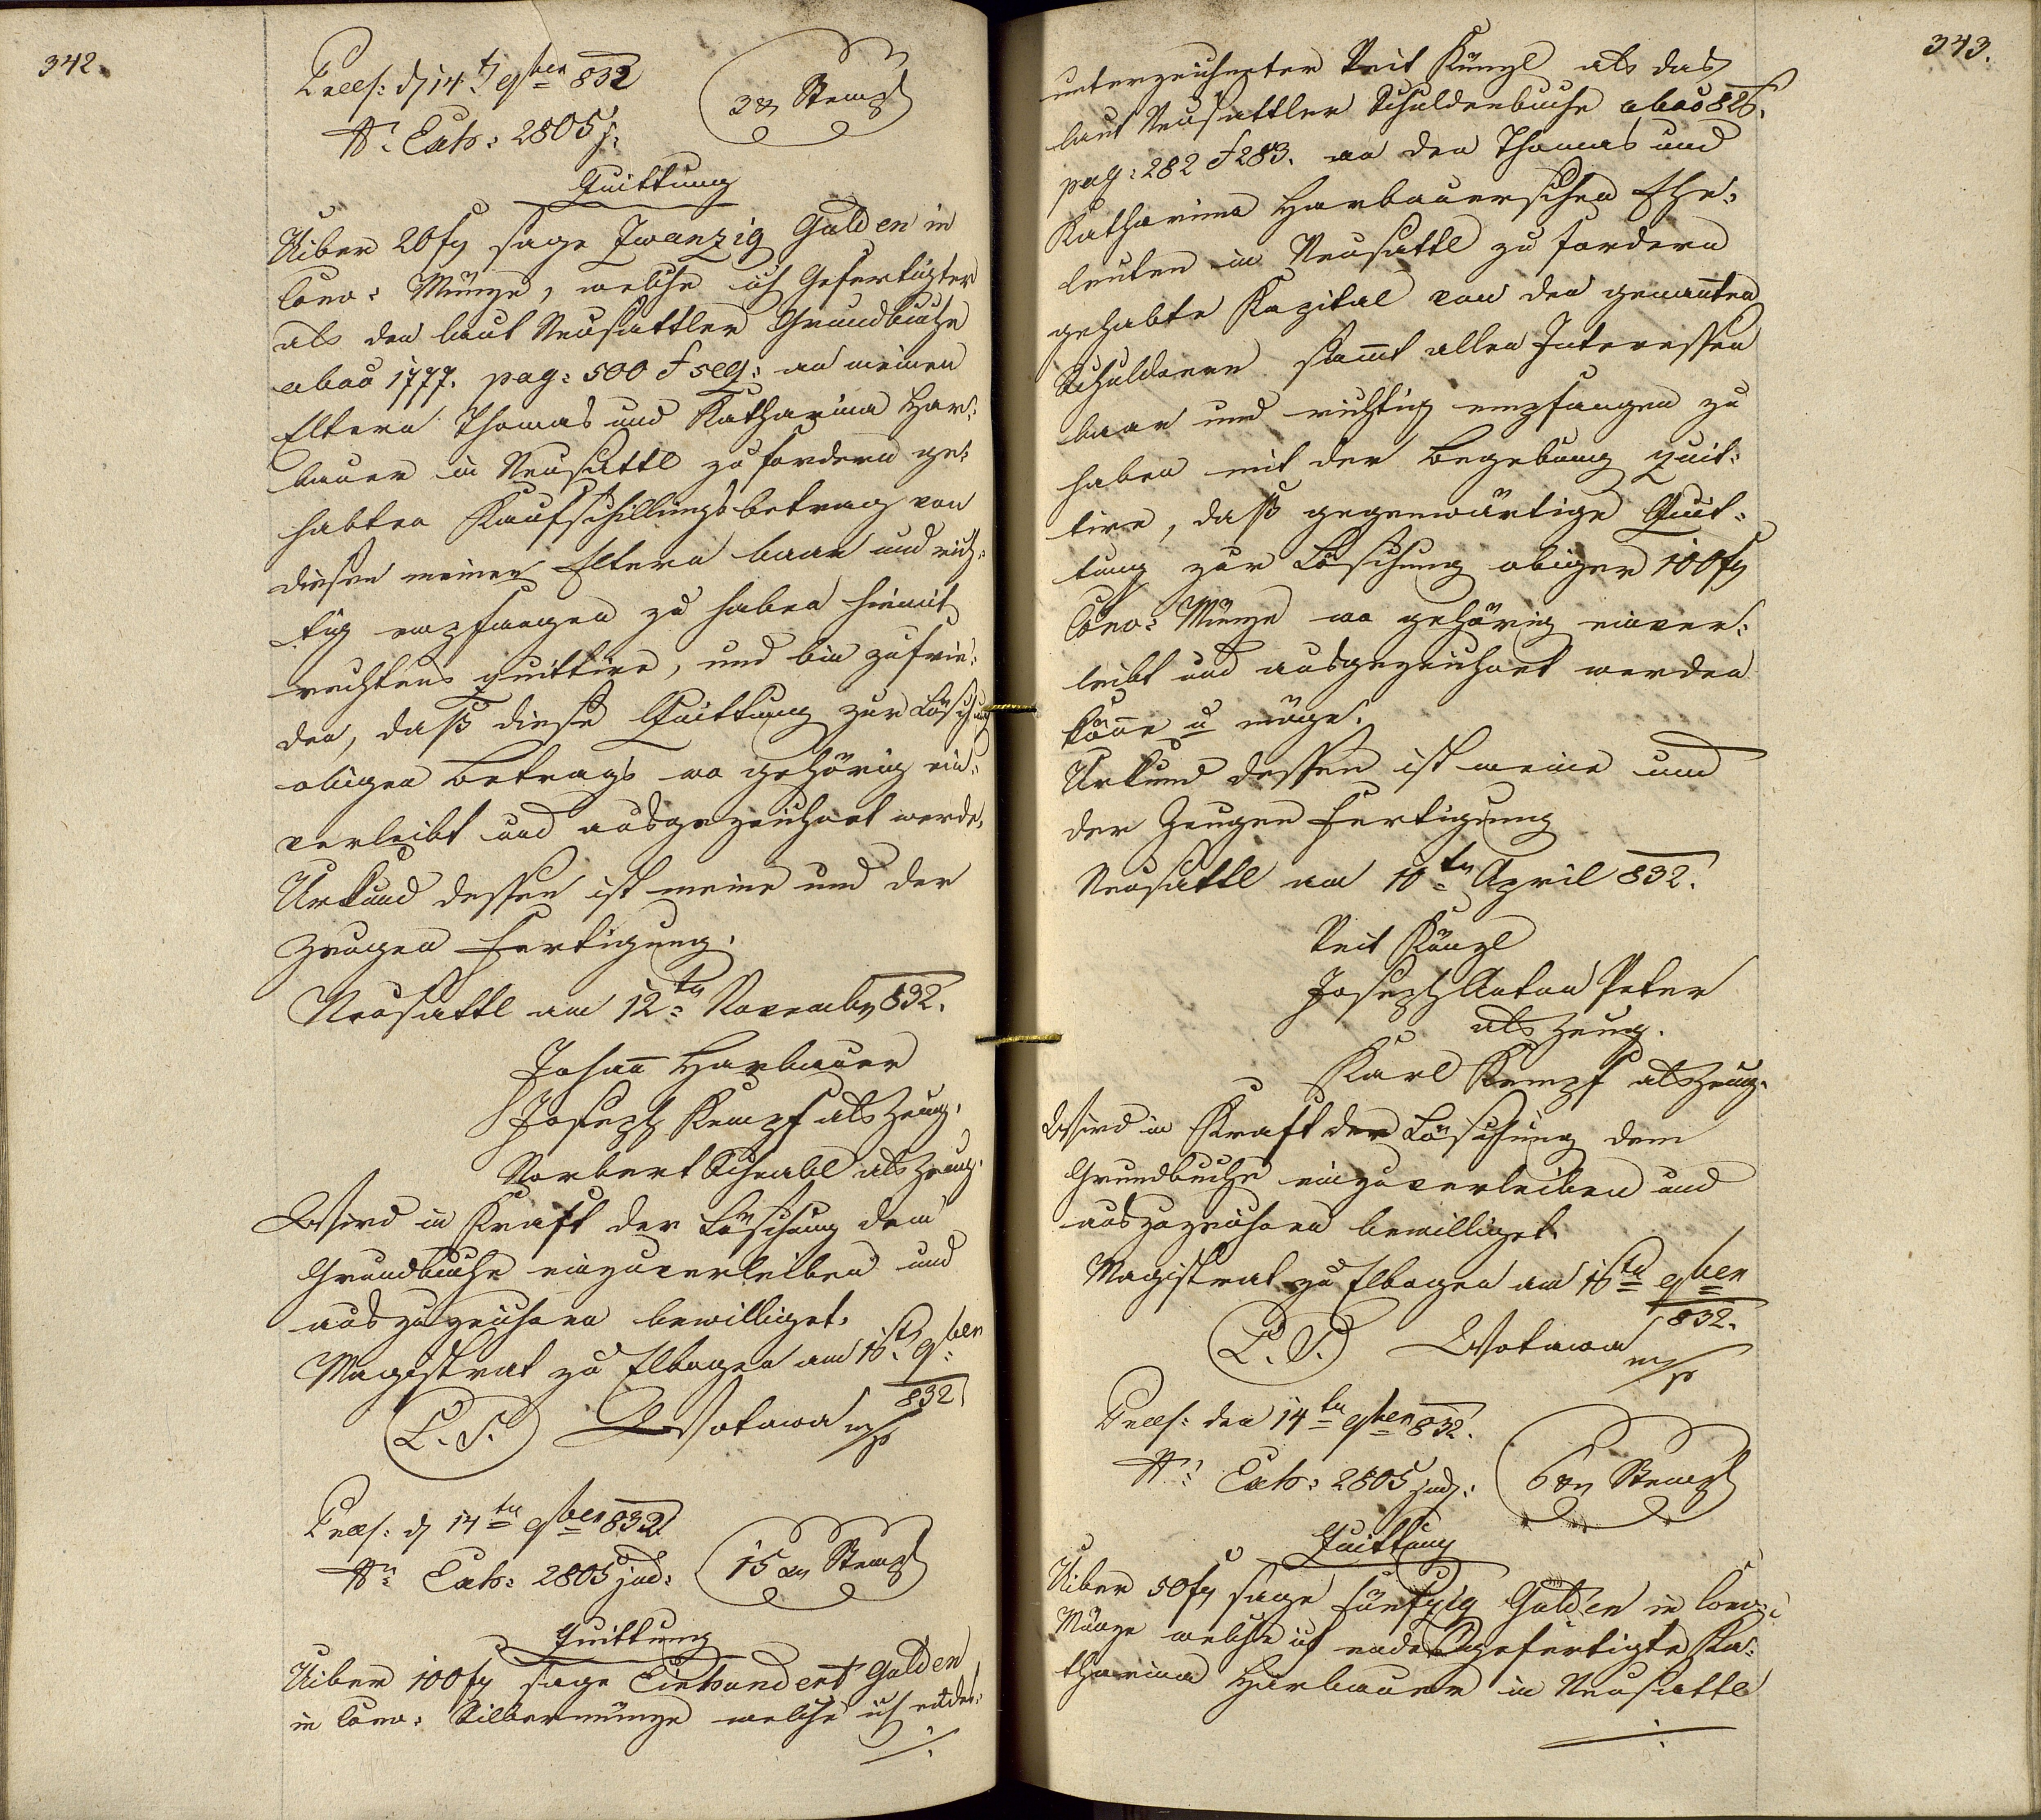 342.
Præs: d 14t 9ber 832
Nr. Exh: 2805 j:
3 xr Stempl
Quittung
Uiber 20 fl sage Zwanzig Gulden in
Conv: Münze, welche ich Gefertigter
als den laut Neusattler Grundbuche
abas 1777. pag: 500 & seq: an meinen
Eltern Thomas und Katharina Har-
bauer in Neusattl zu fordern ge-
habten Kaufschillingsbetrag von
diesen meinen Eltern baar und rich-
tig empfangen zu haben hiemit
rechtens quittire, und bin zufrie-
den, daß diese Quittung zur Löschung
obigen Betrags wo gehörig ein-
verleibt und ausgezeichnet werde.
Urkund dessen ist meine und der
Zeugen Fertigung.
Neusattl am 12tn Novemb 832.
Johann Harbauer
Joseph Kempf als Zeug.
Norbert Schnabl als Zeug.
Wird in Kraft der Löschung dem
Grundbuche einzuverleiben und
auszuzeichnen bewilliget.
Magistrat zu Elbogen am 16t 9ber
832
L. S. Wotawa mp
Præs: d 14tn 9ber 832
Nr. Exh: 2805 jud:
15 xr Stempl
Quittung
Uiber 100 fl sage Einhundert Gulden
in Conv: Silbermünze welche ich endes-
./.
343.
unterzeichneter Veit Künzl als das
laut Neusattler Schuldenbuche abas 826.
pag: 282 & 283. an den Thomas und
Katharina Harbauerschen Ehe-
leuten in Neusattl zu fordern
gehabte Kapital von den genannten
Schuldnern sammt allen Interessen
baar und richtig empfangen zu
haben mit der Begebung quit-
tire, daß gegenwärtige Quit-
tung zur Löschung obiger 100 fl
Conv: Münze wo gehörig einver-
leibt und ausgezeichnet werden
könne u möge.
Urkund dessen ist meine und
der Zeugen Fertigung
Neusattl am 10tn April 832.
Veit Künzl
Joseph Anton Peter
als Zeug.
Karl Kempf als Zeug.
Wird in Kraft der Löschung dem
Grundbuche einzuverleiben und
auszuzeichnen bewilliget.
Magistrat zu Elbogen am 16tn 9ber
832.
L. S. Wotawa mp
Præs: den 14tn 9ber 832.
Nr. Exh: 2805 jud:
6 xr Stempl
Quittung
Uiber 50 fl sage Fünfzig Gulden in Conv:
Münze welche ich endesgefertigte Ka-
tharina Harbauer in Neusattl
./.